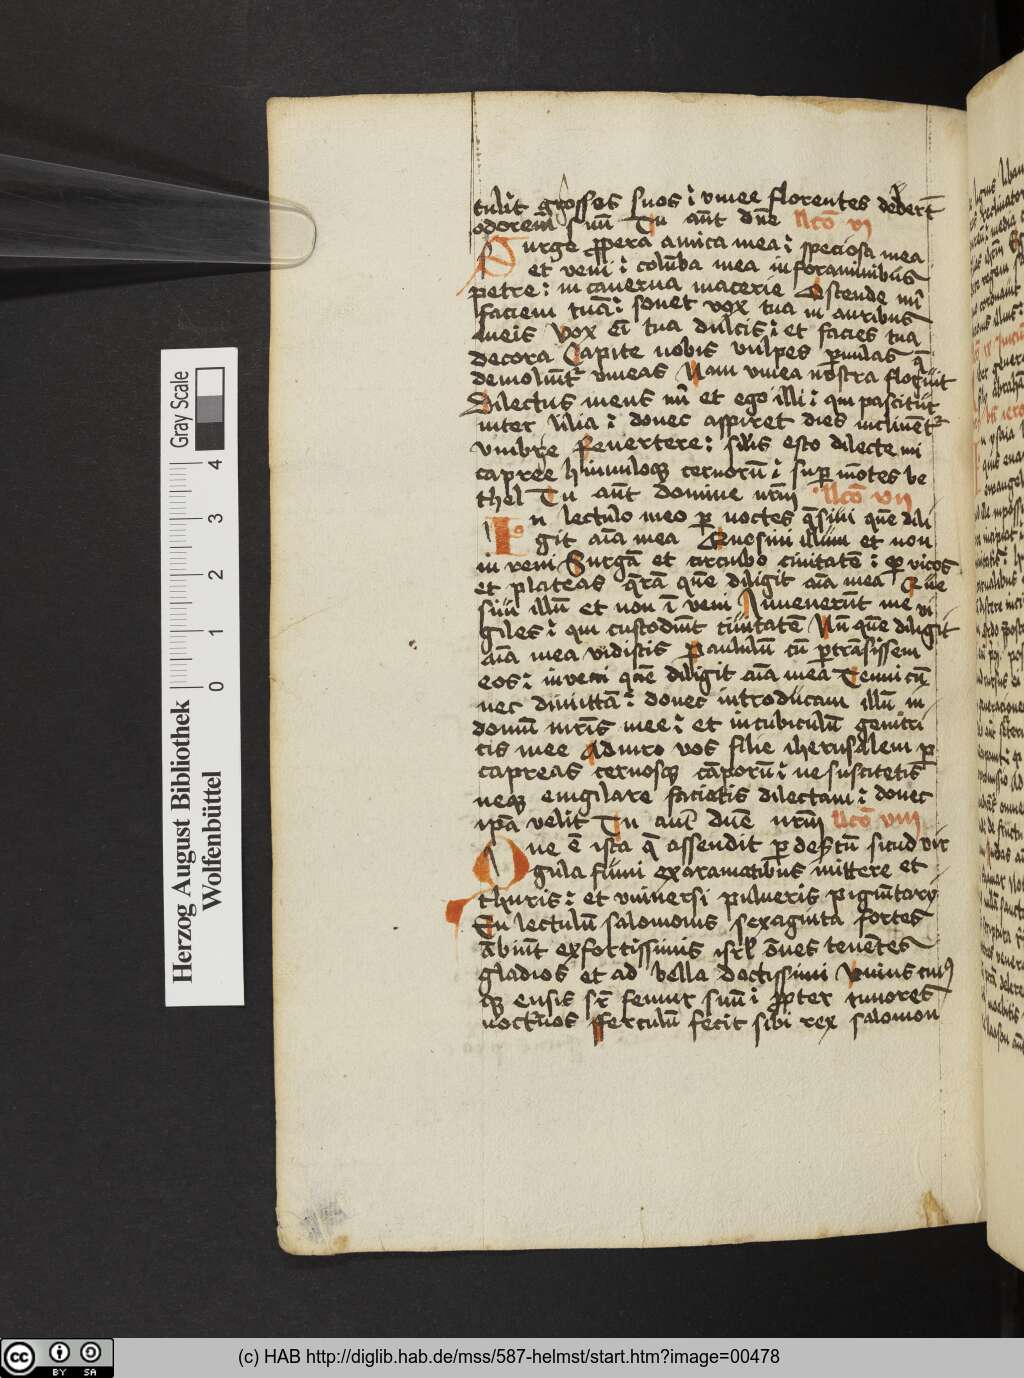 tulit grosses suos ⁊ vinee florentes dedert̄
odorem suū Tu aūt dn̄e llc̄o vi
Surge ꝓpera amica mea ⁊ speciosa mea
et veni ⁊ colūba mea in foraminibus
petre ⁊ in cauerna macerie Ostende m̄
faciem tuā ⁊ sonet vox tua in auribus
meis Vox em̄ tua dulcis ⁊ et facies tua
decora Capite nobis vulpes ꝑuulas q̄
demoliūt̄ vineas Nam vinea nostra floruit
Dilectus meus m̄ et ego illi ⁊ qui pascitur
inter lilia ⁊ donec aspiret dies inclinēt̄
vmbre Reuertere ⁊ sil̄is esto dilecte mi
capree hinnuloqꝫ ceruorū ⁊ suꝑ mōtes be
thel Tu aūt domine nr̄m llc̄o vii
In lectulo meo ꝑ noctes q̄siui quē dili
git aīa mea Quesiui illum et non
in veni Surgā et circuibo ciuitatē ⁊ ꝑ vicos
et plateas q̄rā quē diligit aīa mea Que
siui illū et non ī veni Inuenerūt me vi
giles ⁊ qui custodiūt ciuitatē Nū quē diligit
aīa mea vidistis Paululū cū ꝑtrāsissem
eos ⁊ inveni quē diligit aīa mea Tenui eū
nec dimittā ⁊ donec introducam illū in
domū mr̄is mee ⁊ et in cubiculū genitri
cis mee Adiuro vos filie iherusalem ꝑ
capreas ceruosqꝫ cāporū ⁊ ne suscitetis
neqꝫ euigilare faciatis dilectam ⁊ donec
ipā velit Tu aut dn̄e nr̄m llc̄o viii
Que ē ista q̄ assendit ꝑ desertū sicud vir
gula fumi ex aramatibus mittere et
thuris ⁊ et vniuersi pulueris pigmētary
En lectulū salomonis sexaginta fortes
ābiūt ex fortissimis isrl̄ ōnes tenētes
gladios et ad bella doctissimi Vnius cuiꝰ
qꝫ ensis sr̄ femur suū ⁊ ꝓpter timores
nocturnos Ferculū fecit sibi rex salomon
Gray Scale
0 1 2 3 4
Herzog August Bibliothek
Wolfenbüttel
cc BY SA
(c) HAB http://diglib.hab.de/mss/587-helmst/start.htm?image=00478